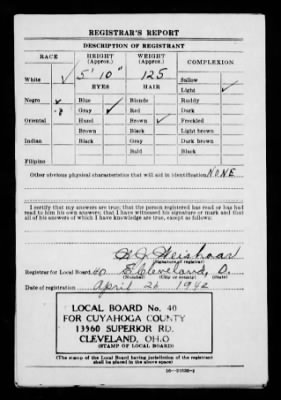 REGISTRAR'S REPORT
DESCRIPTION OF REGISTRANT
RACE HEIGHT (Approx.) WEIGHT (Approx.) COMPLEXION
White ✓ 5' 10" 125 Sallow
EYES HAIR Light ✓
Negro Blue Blonde Ruddy
Gray ✓ Red Dark
Oriental Hazel Brown ✓ Freckled
Brown Black Light brown
Indian Black Gray Dark brown
Bald Black
Filipino
Other obvious physical characteristics that will aid in identification NONE
I certify that my answers are true; that the person registered has read or has had
read to him his own answers; that I have witnessed his signature or mark and that
all of his answers of which I have knowledge are true, except as follows:
Weishaar
(Signature of registrar)
Registrar for Local Board 40 E. Cleveland, O.
(Number) (City or county) (State)
Date of registration April 26 1942
LOCAL BOARD No. 40
FOR CUYAHOGA COUNTY
13960 SUPERIOR RD.
CLEVELAND, OHIO
(STAMP OF LOCAL BOARD)
(The stamp of the Local Board having jurisdiction of the registrant
shall be placed in the above space)